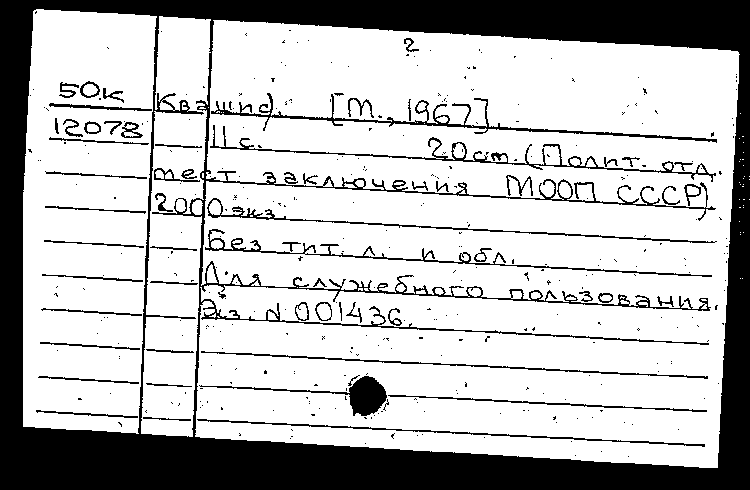 2
50к Квашис). [М., 1967].
12078 11 с. 20 см. (Полит. отд.
мест заключения МООП СССР)
2000 экз.
Без тит. л. и обл.
Для служебного пользования.
Экз. N 001436.